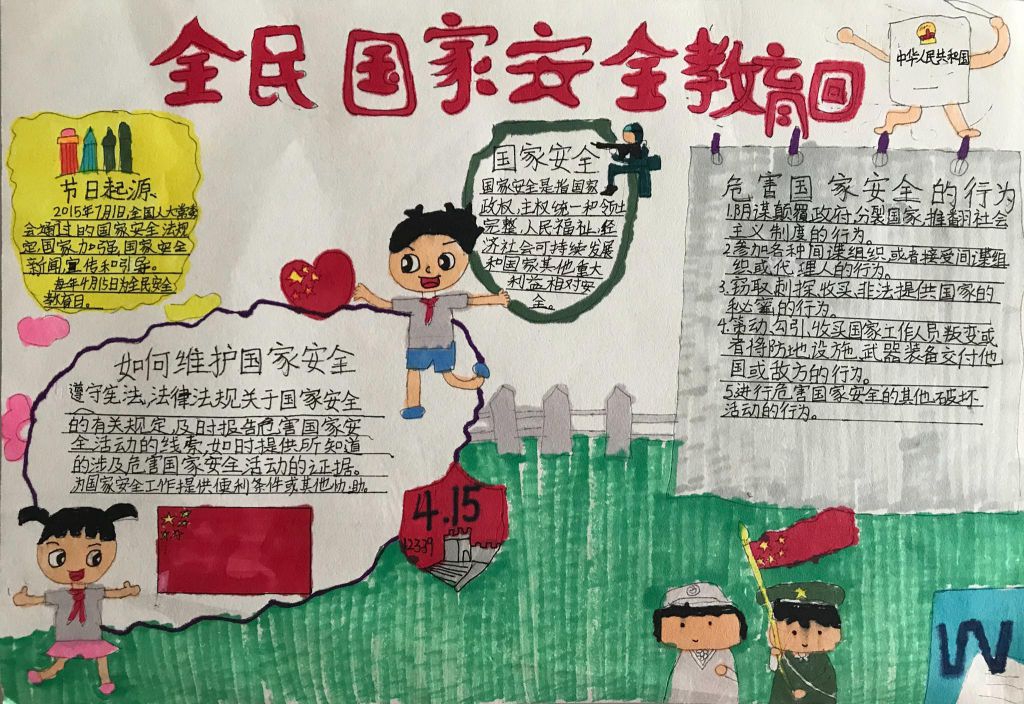 全民国家安全教育日
中华人民共和国
节日起源
2015年7月1日,全国人大常委
会通过的国家安全法规
定国家加强国家安全
新闻,宣传和引导。
每年4月15日为全民安全
教育日。
国家安全
国家安全是指国家
政权,主权统一和领土
完整,人民福祉,经
济社会可持续发展
和国家其他重大
利益相对安
全。
危害国家安全的行为
1.阴谋颠覆,政府,分裂国家,推翻社会
主义制度的行为。
2.参加各种间谍组织,或者接受间谍组
织或代理人的行为。
3.窃取刺探收买,非法提供国家的
秘密的行为。
4.策动,勾引,收买国家工作人员叛变或
者将防地,设施,武器装备交付他
国或敌方的行为。
5.进行危害国家安全的其他破坏
活动的行为。
如何维护国家安全
遵守宪法,法律法规关于国家安全
的有关规定,及时报告危害国家安
全活动的线索,如时提供所知道
的涉及危害国家安全活动的证据。
为国家安全工作提供便利条件或其他协助。
4.15
12339